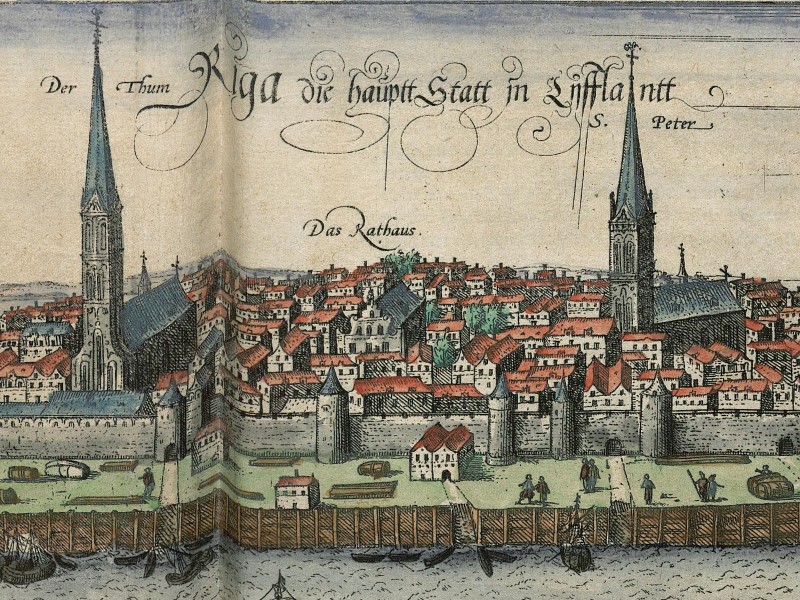 Der Thum
Riga die hauptt Statt in Lyfflaintt
S. Peter
Das Rathaus.